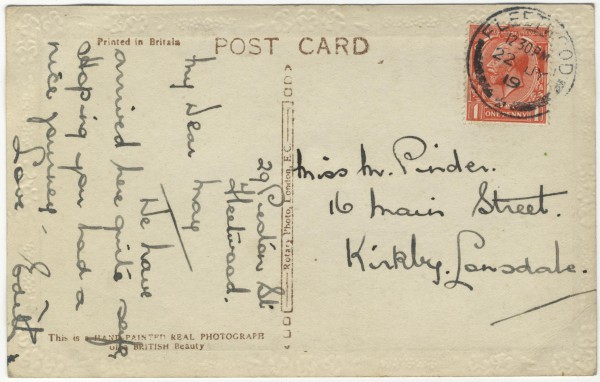 Printed in Britain
POST CARD
FLEETWOOD
12 30 PM
22
19
ONE PENNY
1
29 Preston St.
Fleetwood.
My dear May
We have
arrived here quite safe,
Hoping you had a
nice journey -
Love - Edith
Rotary Photo, London, E.C.
Miss M. Pinder.
16 Main Street.
Kirkby Lonsdale.
This is a HAND-PAINTED REAL PHOTOGRAPH
of a BRITISH Beauty